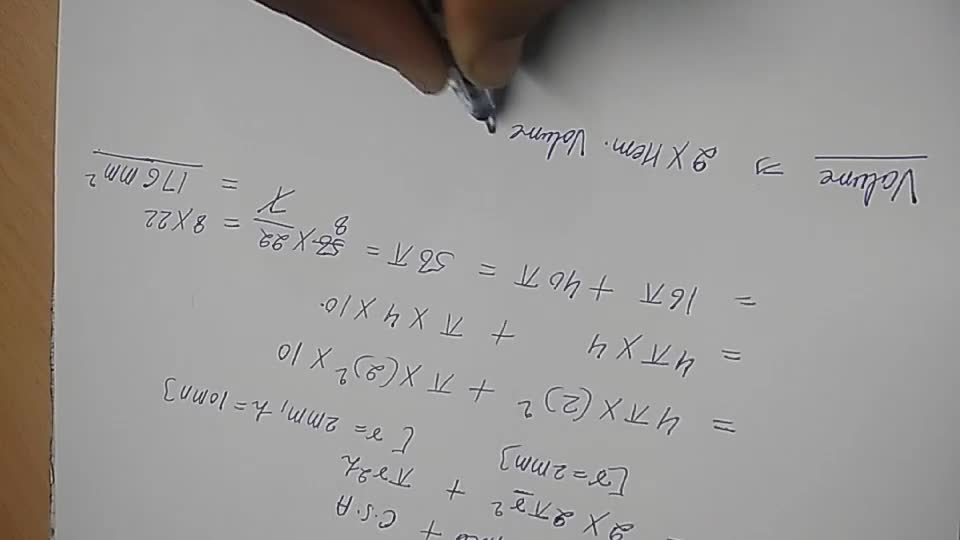 + C.S.A
2 × 2πr² + πr²h
[r=2mm] [r = 2mm, h = 10mm]
= 4π × (2)² + π × (2)² × 10
= 4π × 4 + π × 4 × 10.
= 16π + 40π = 56π = 56 × 22/7 = 8 × 22
8
= 176 mm²
Volume ⇒ 2 × Hem. Volume